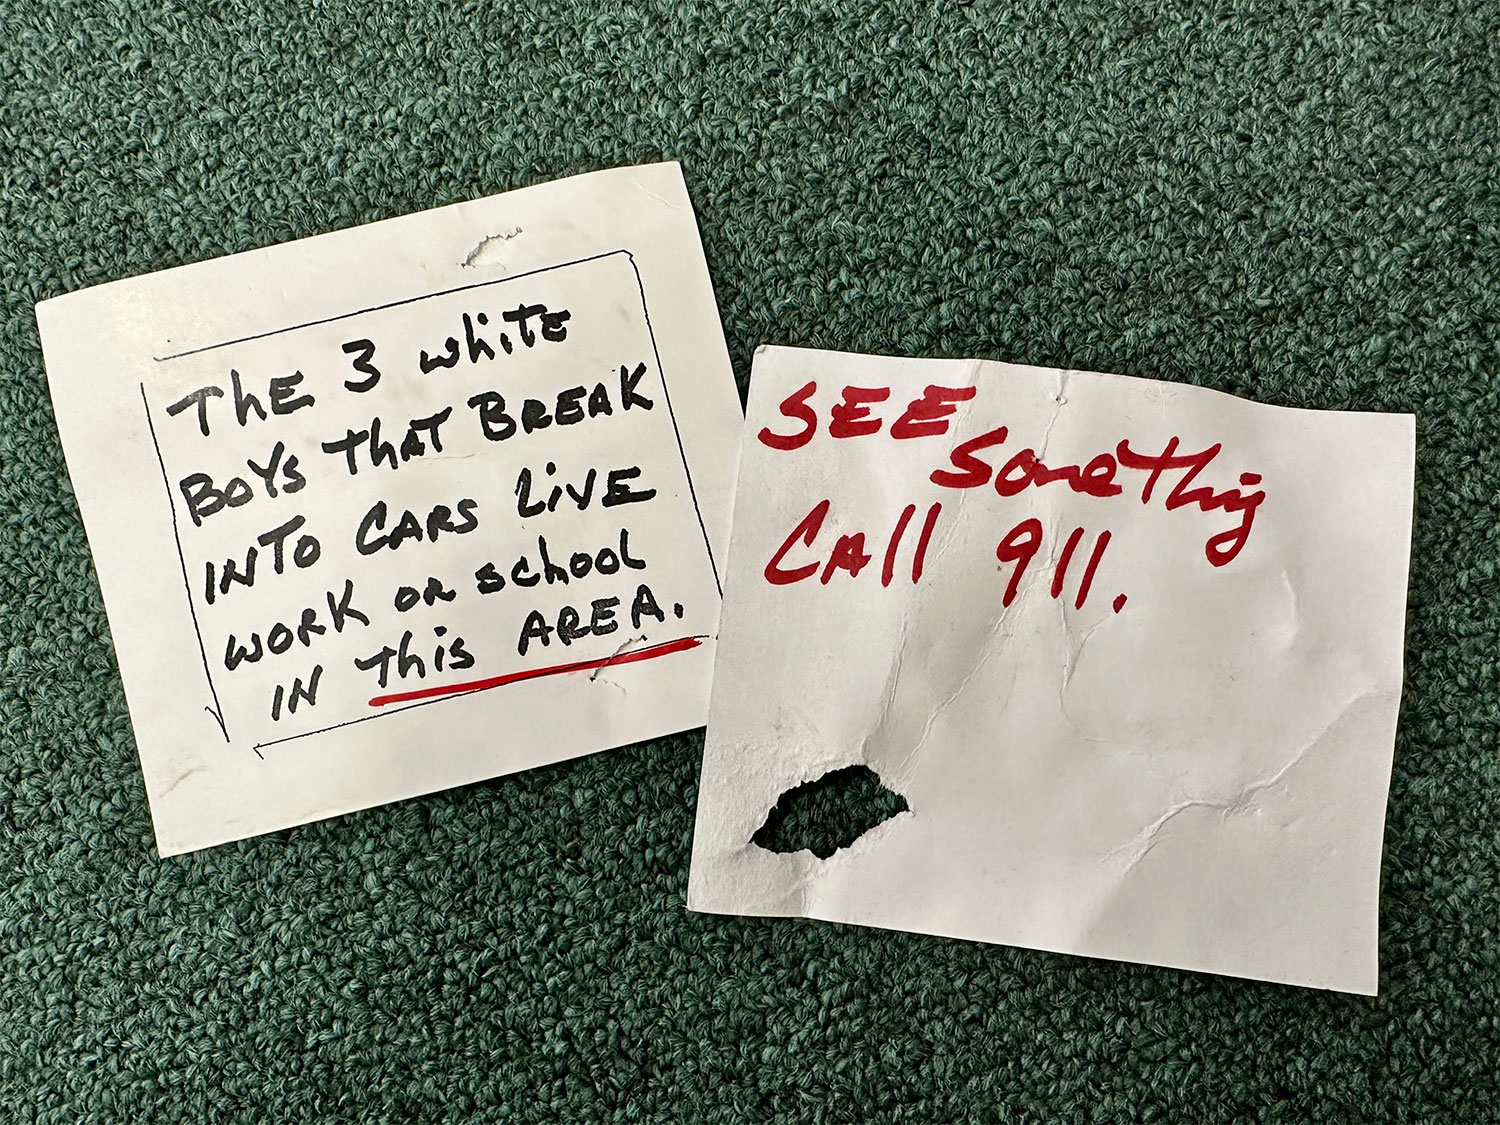 The 3 white
Boys that Break
into Cars Live
work or school
in this Area.
See
Something
Call 911.